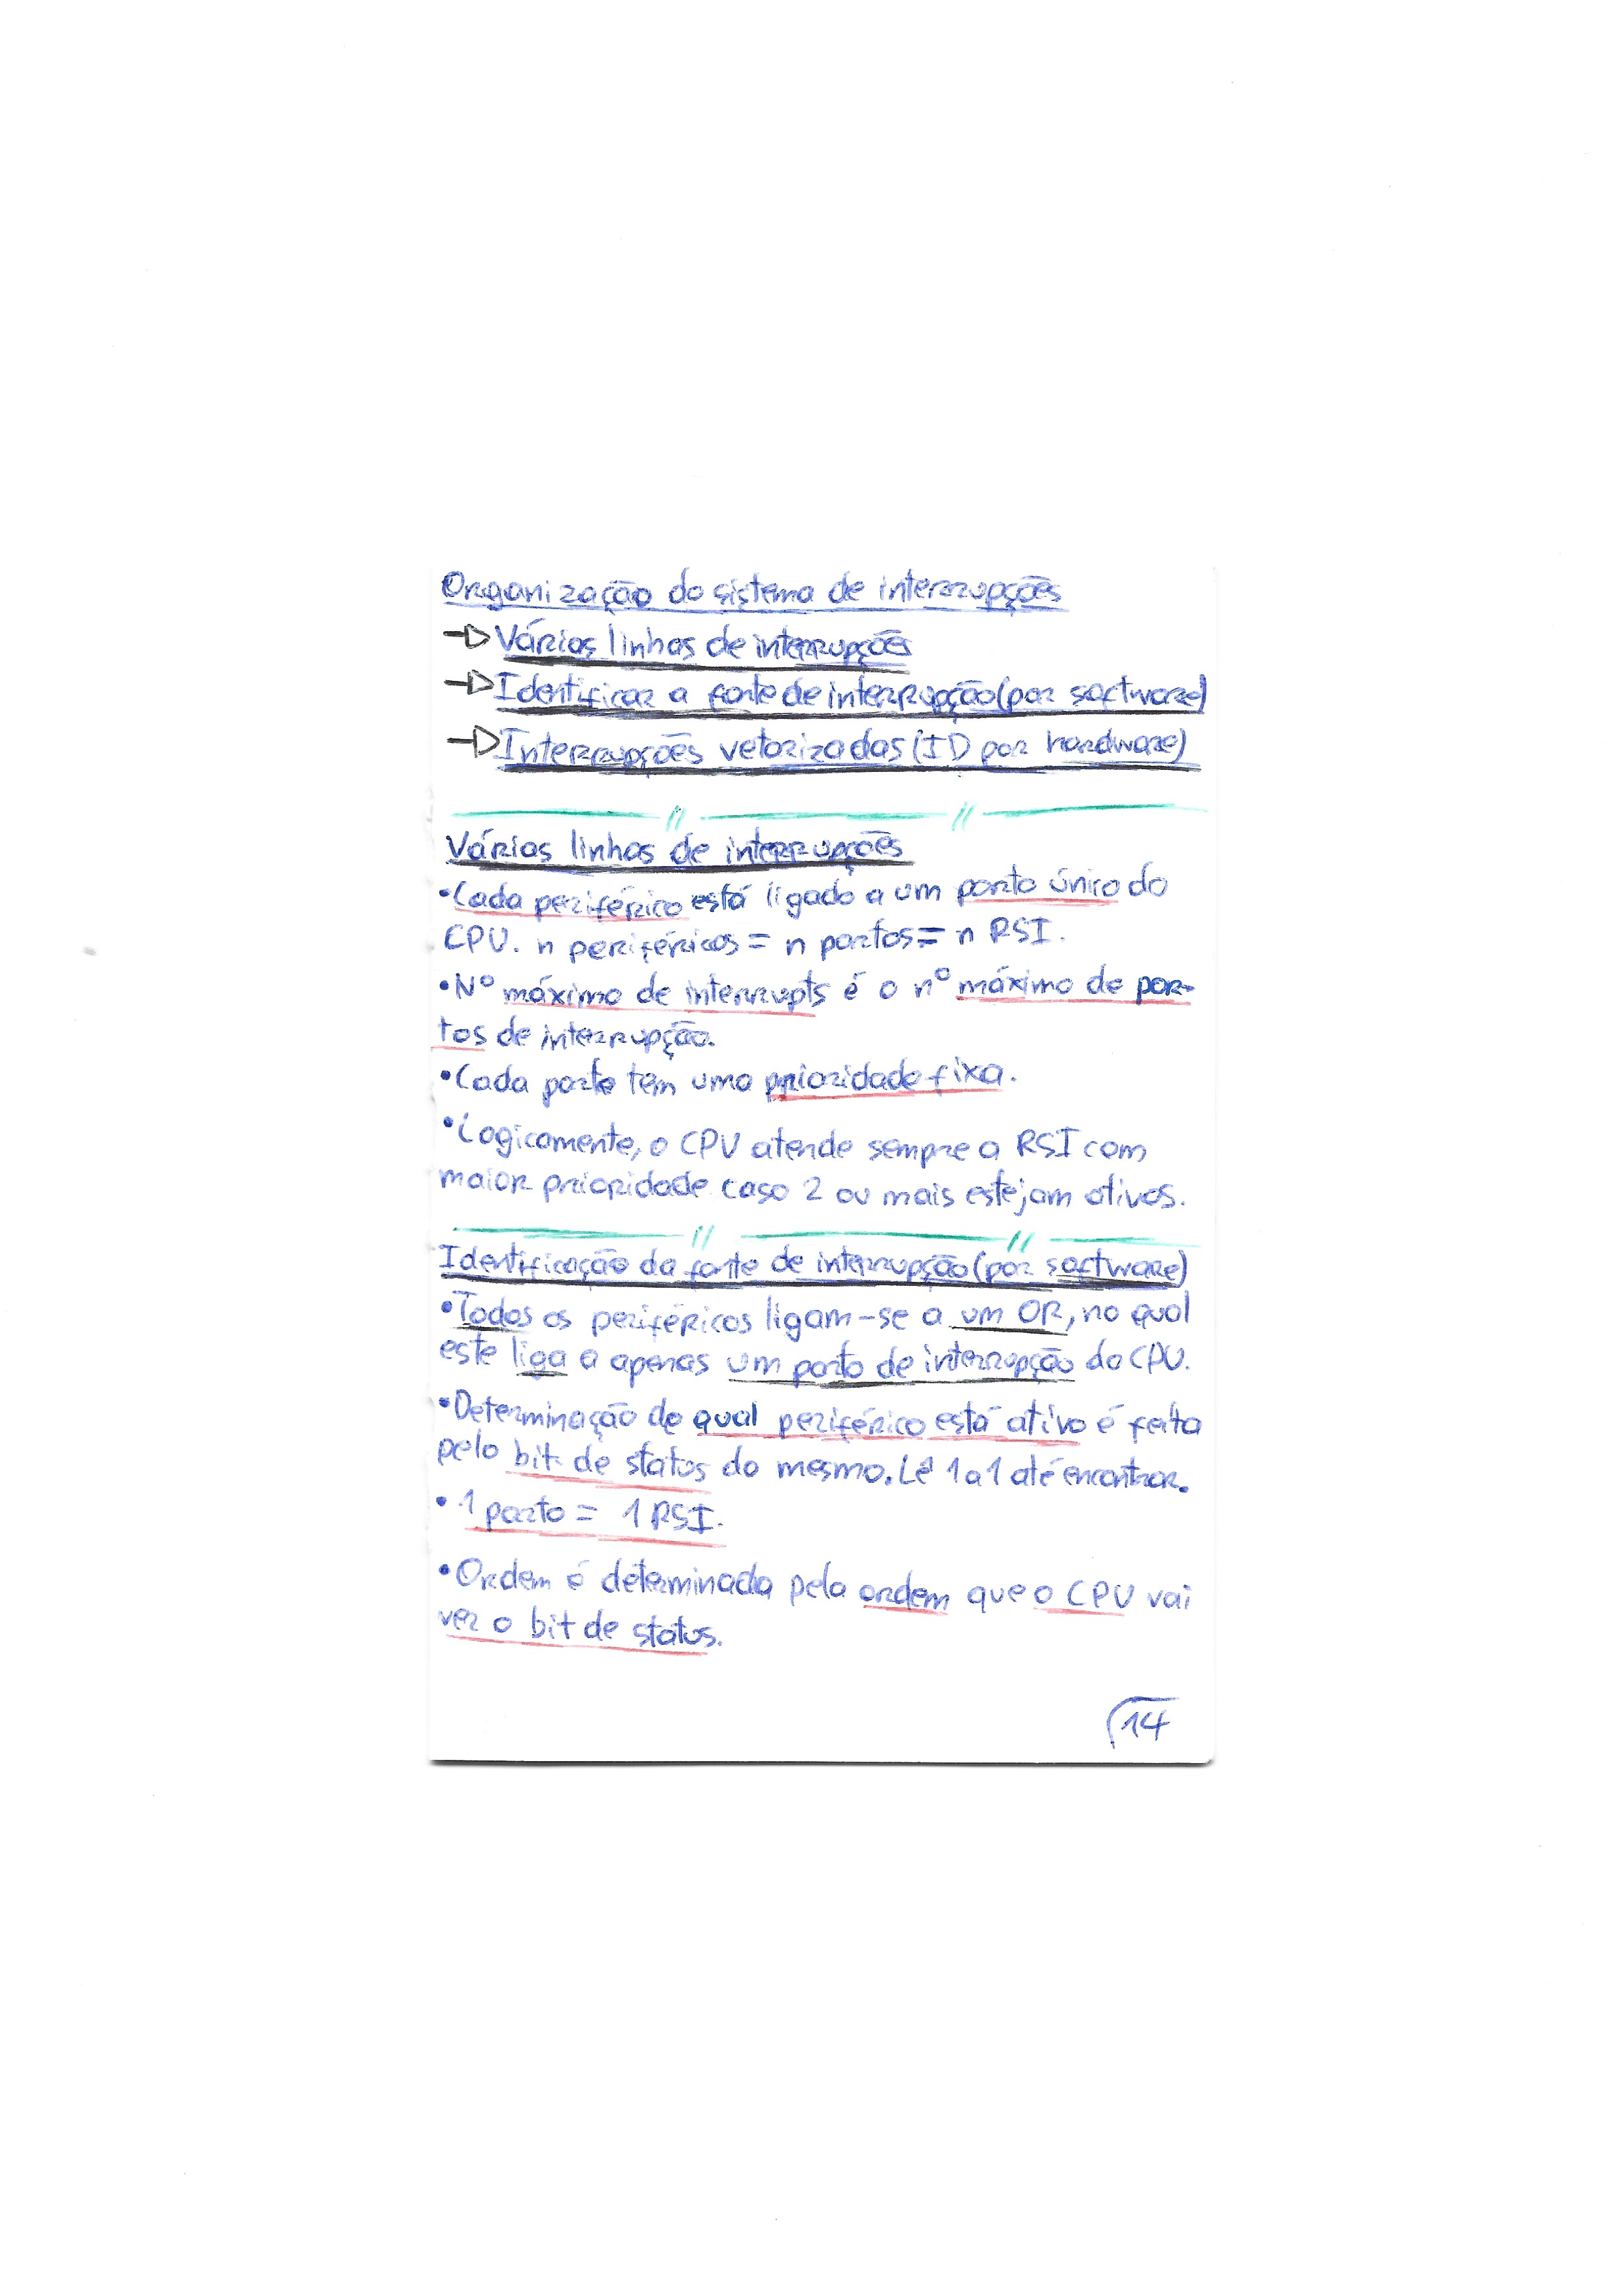 Organização do sistema de interrupções
Várias linhas de interrupções
Identificar a fonte de interrupção (por software)
Interrupções vetorizadas (ID por hardware)
Várias linhas de interrupções
• Cada periférico está ligado a um porto único do
CPU. n periféricos = n portos = n RSI.
• Nº máximo de interrupts é o nº máximo de por-
tos de interrupção.
• Cada porto tem uma prioridade fixa.
• Logicamente, o CPU atende sempre a RSI com
maior prioridade caso 2 ou mais estejam ativos.
Identificação da fonte de interrupção (por software)
• Todos os periféricos ligam-se a um OR, no qual
este liga a apenas um porto de interrupção do CPU.
• Determinação de qual periférico está ativo é feita
pelo bit de status do mesmo. Lê 1 a 1 até encontrar.
• 1 porto = 1 RSI.
• Ordem é determinada pela ordem que o CPU vai
ver o bit de status.
14